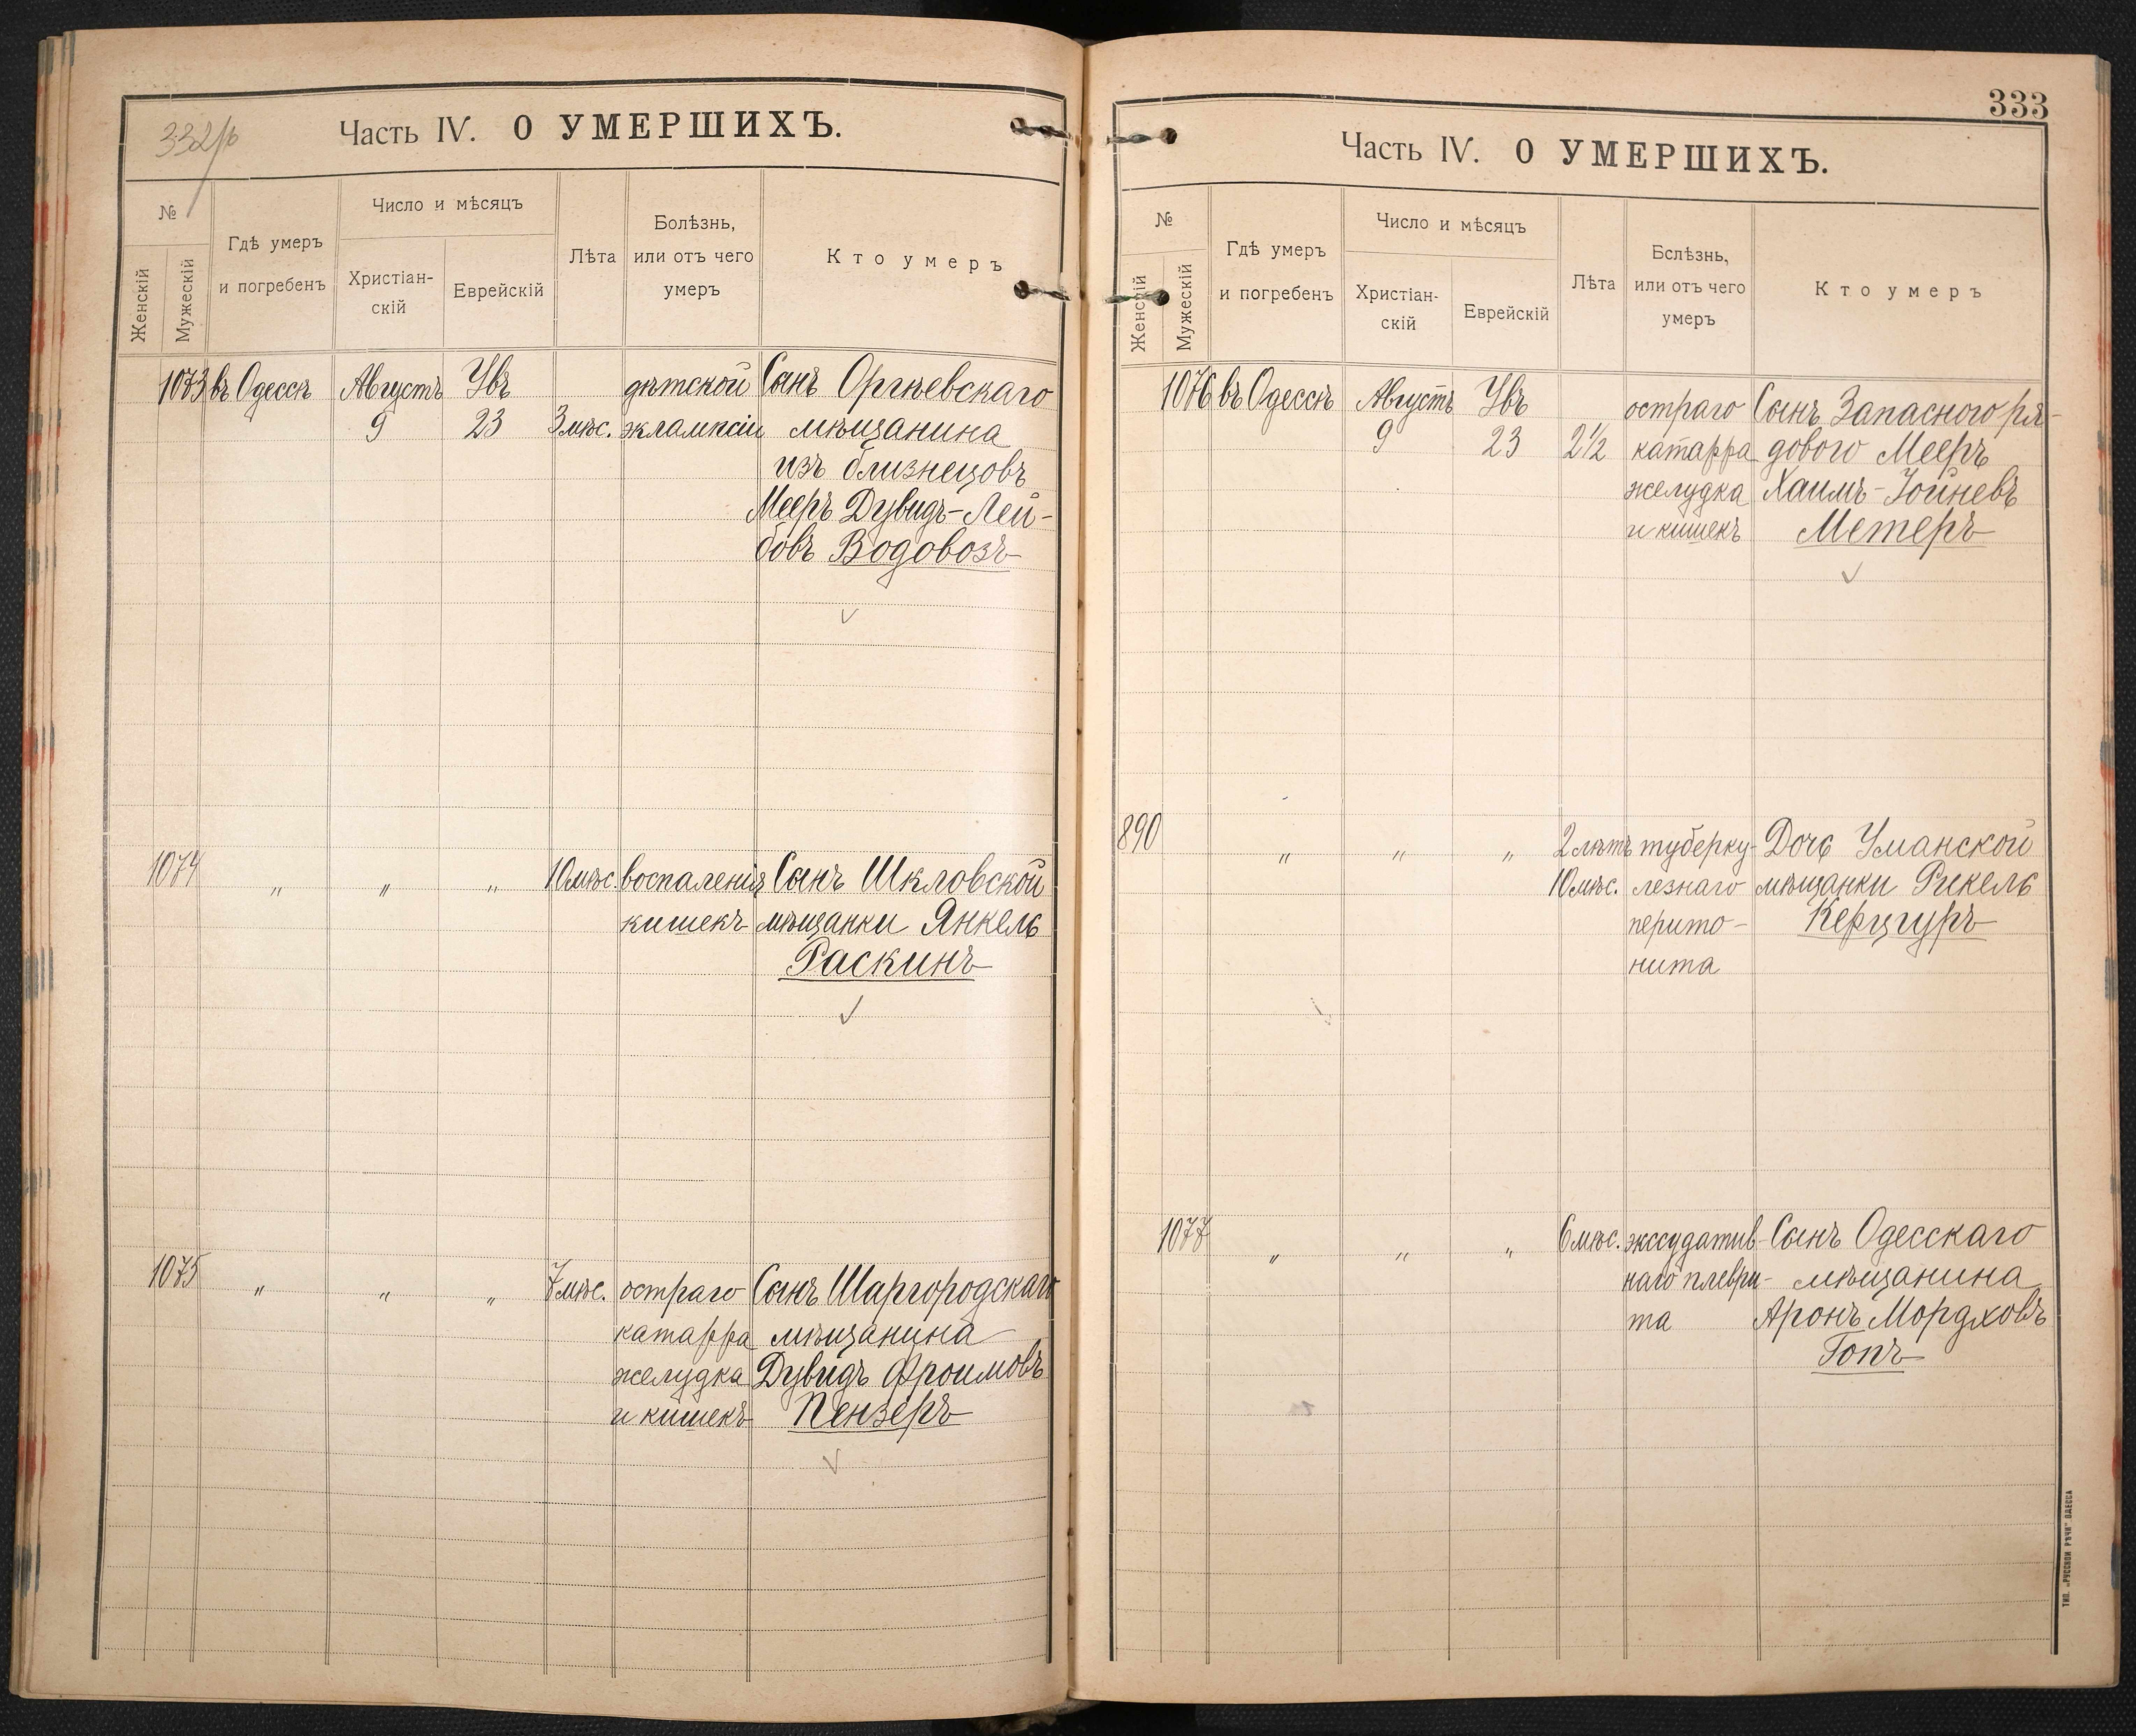 332/ъ
Часть IV. О УМЕРШИХЪ.
№
Женскій
Мужескій
Гдѣ умеръ
и погребенъ
Число и мѣсяцъ
Христіан-
скій
Еврейскій
Лѣта
Болѣзнь,
или отъ чего
умеръ
Кто умеръ
1073 въ Одессѣ Августъ Увъ дѣтской Сынъ Оргѣевскаго
9 23 3 мѣс. эклампсіи мѣщанина
изъ близнецовъ
Мееръ Дувидъ-Лей-
бовъ Водовозъ
1074 „ „ „ 10 мѣс. воспаленія Сынъ Шкловской
кишекъ мѣщанки Янкель
Раскинъ
1075 „ „ „ 7 мѣс. остраго Сынъ Шаргородскаго
катарра мѣщанина
желудка Дувидъ Фроимовъ
и кишекъ Пензеръ
333
Часть IV. О УМЕРШИХЪ.
№
Женскій
Мужескій
Гдѣ умеръ
и погребенъ
Число и мѣсяцъ
Христіан-
скій
Еврейскій
Лѣта
Бслѣзнь,
или отъ чего
умеръ
Кто умеръ
1076 въ Одессѣ Августъ Увъ остраго Сынъ Запасного ря-
9 23 2½ катарра дового Мееръ
желудка Хаимъ-Іойневъ
и кишекъ Метеръ
890 „ „ „ 2 лѣтъ туберку- Дочь Уманской
10 мѣс. лезнаго мѣщанки Рикель
перито- Керцгуръ
нита
1077 „ „ „ 6 мѣс. экссудатив- Сынъ Одесскаго
наго плеври- мѣщанина
та Аронъ Мордховъ
Гопъ
ТИП. „РУССКОЙ РѢЧИ" ОДЕССА